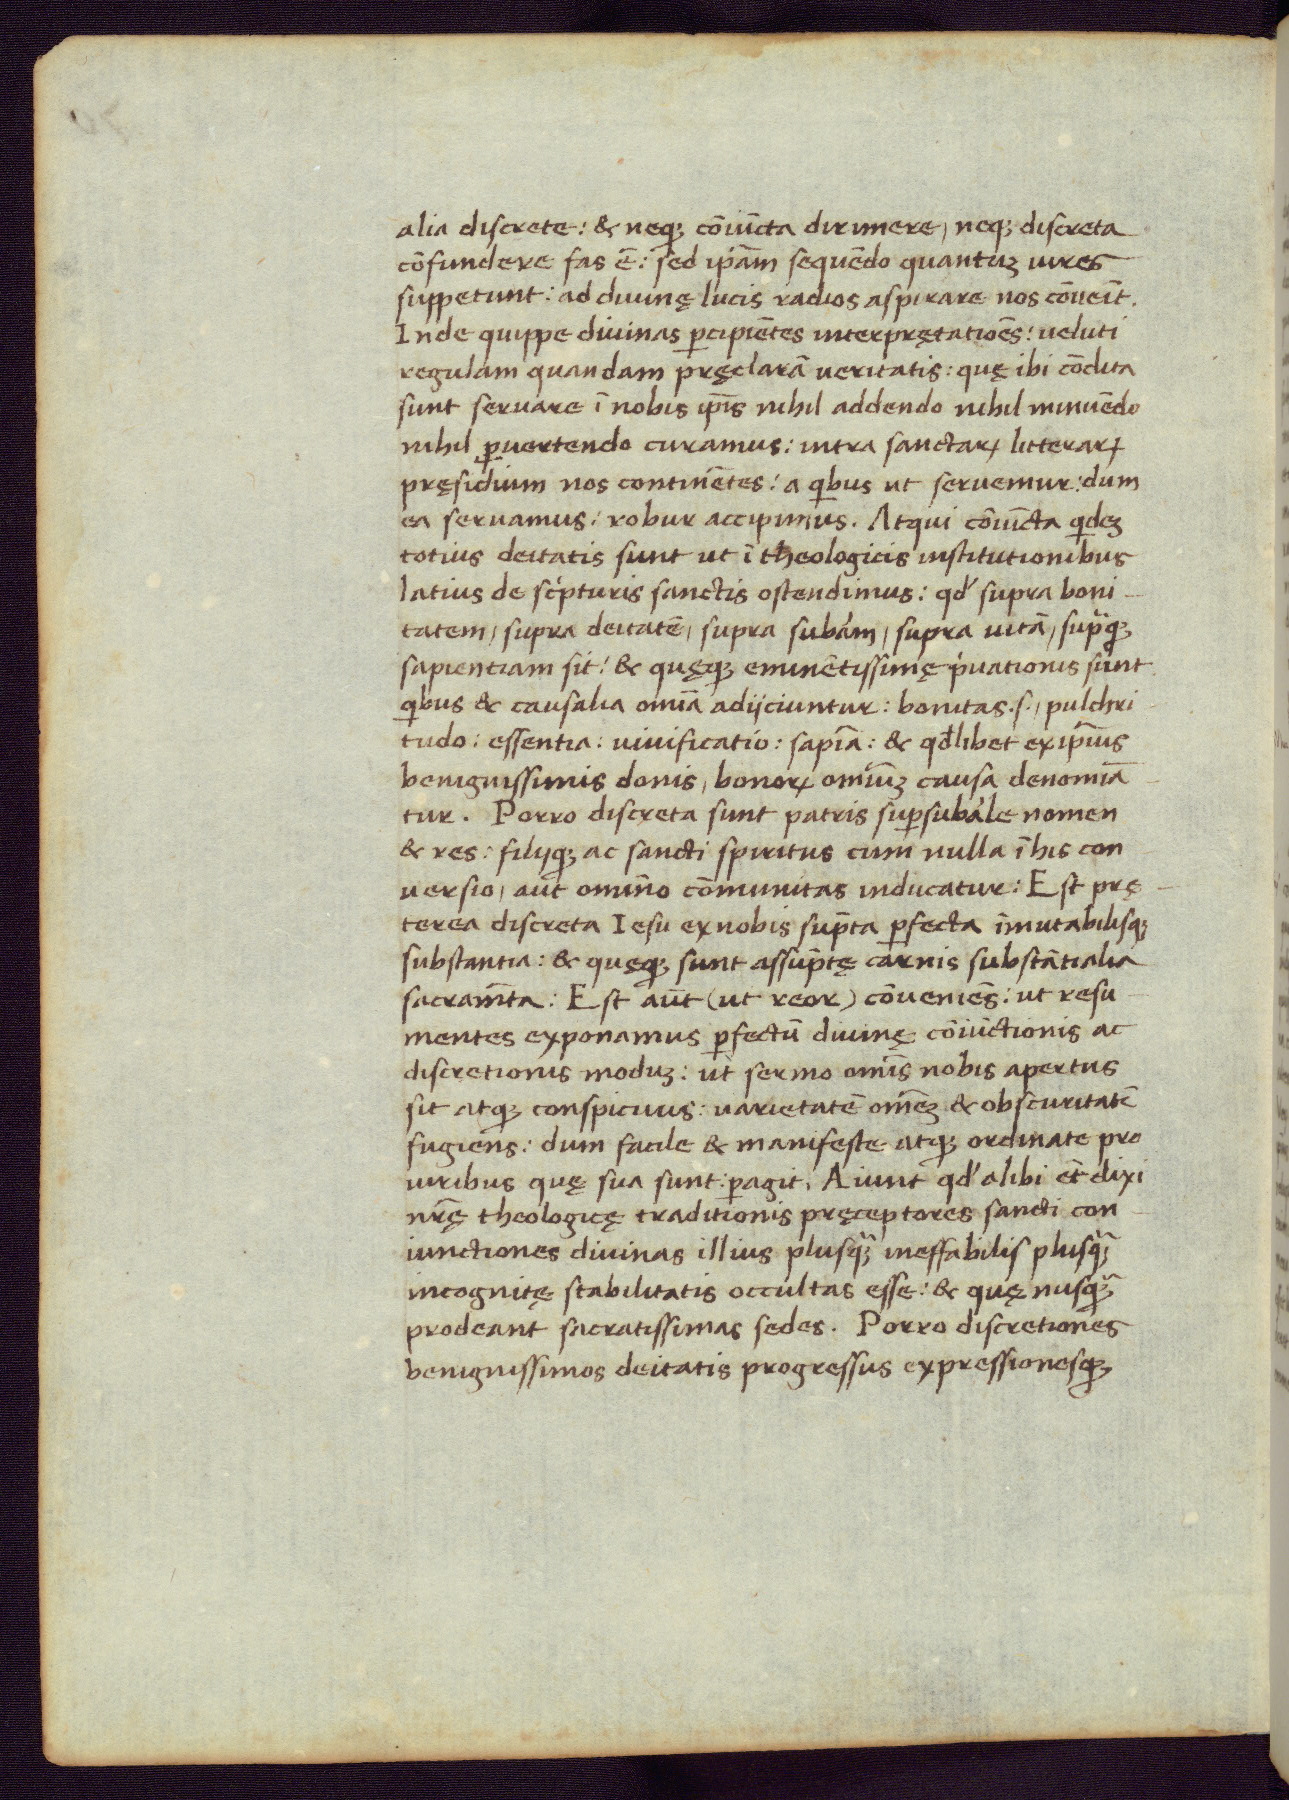 alia discrete: & neqꝫ cōiūcta dirimere, neqꝫ discreta
cōfundere fas ē: sed ip̄am sequēdo quantuꝫ uires
suppetunt: ad diuinę lucis radios aspirare nos cōueīt.
Inde quippe diuinas ꝑcipiētes interpretatiōēs: ueluti
regulam quandam pręclarā ueritatis: quę ibi cōdita
sunt seruare ī nobis ip̄is nihil addendo nihil minuēdo
nihil ꝑuertendo curamus: intra sanctaꝝ litteraꝝ
pręsidium nos continētes: a qibus ut seruemur: dum
ea seruamus: robur accipimus. Atqui cōiūcta qideꝫ
totius deitatis sunt ut ī theologicis institutionibus
latius de scṕturis sanctis ostendimus: qd' supra boni
tatem, supra deitatē, supra subām, supra uitā, suꝑqꝫ
sapientiam sit: & quęqꝫ eminētissimę ṕuationis sunt
qibus & causalia omīa adijciuntur: bonitas .s., pulchri
tudo: essentia: uiuificatio: sapīa: & qđlibet ex ip̄ius
benignissimis donis, bonoꝝ omīuꝫ causa denomīa
tur. Porro discreta sunt patris suꝑsubāle nomen
& res: filijqꝫ ac sancti spiritus cum nulla ī his con
uersio, aut omīno cōmunitas inducatur: Est prę
terea discreta Iesu ex nobis sūpta ꝑfecta īmutabilisqꝫ
substantia: & quęqꝫ sunt assūptę carnis substātialia
sacramēta: Est aūt (ut reor) cōueniēs: ut resu
mentes exponamus ꝑfectū diuinę cōiūctionis ac
discretionis moduꝫ: ut sermo omīs nobis apertus
sit atqꝫ conspicuus: uarietatē omēꝫ & obscuritatē
fugiens: dum facile & manifeste atqꝫ ordinate pro
uiribus quę sua sunt: ꝑagit. Aiunt qd' alibi ēt dixi
nr̄ę theologicę traditionis pręceptores sancti con
iunctiones diuinas illius plusqꝫ̄ ineffabilis plusqꝫ̄
incognitę stabilitatis occultas esse: & quę nusqꝫ̄
prodeant sacratissimas sedes. Porro discretiones
benignissimos deitatis progressus expressionesqꝫ